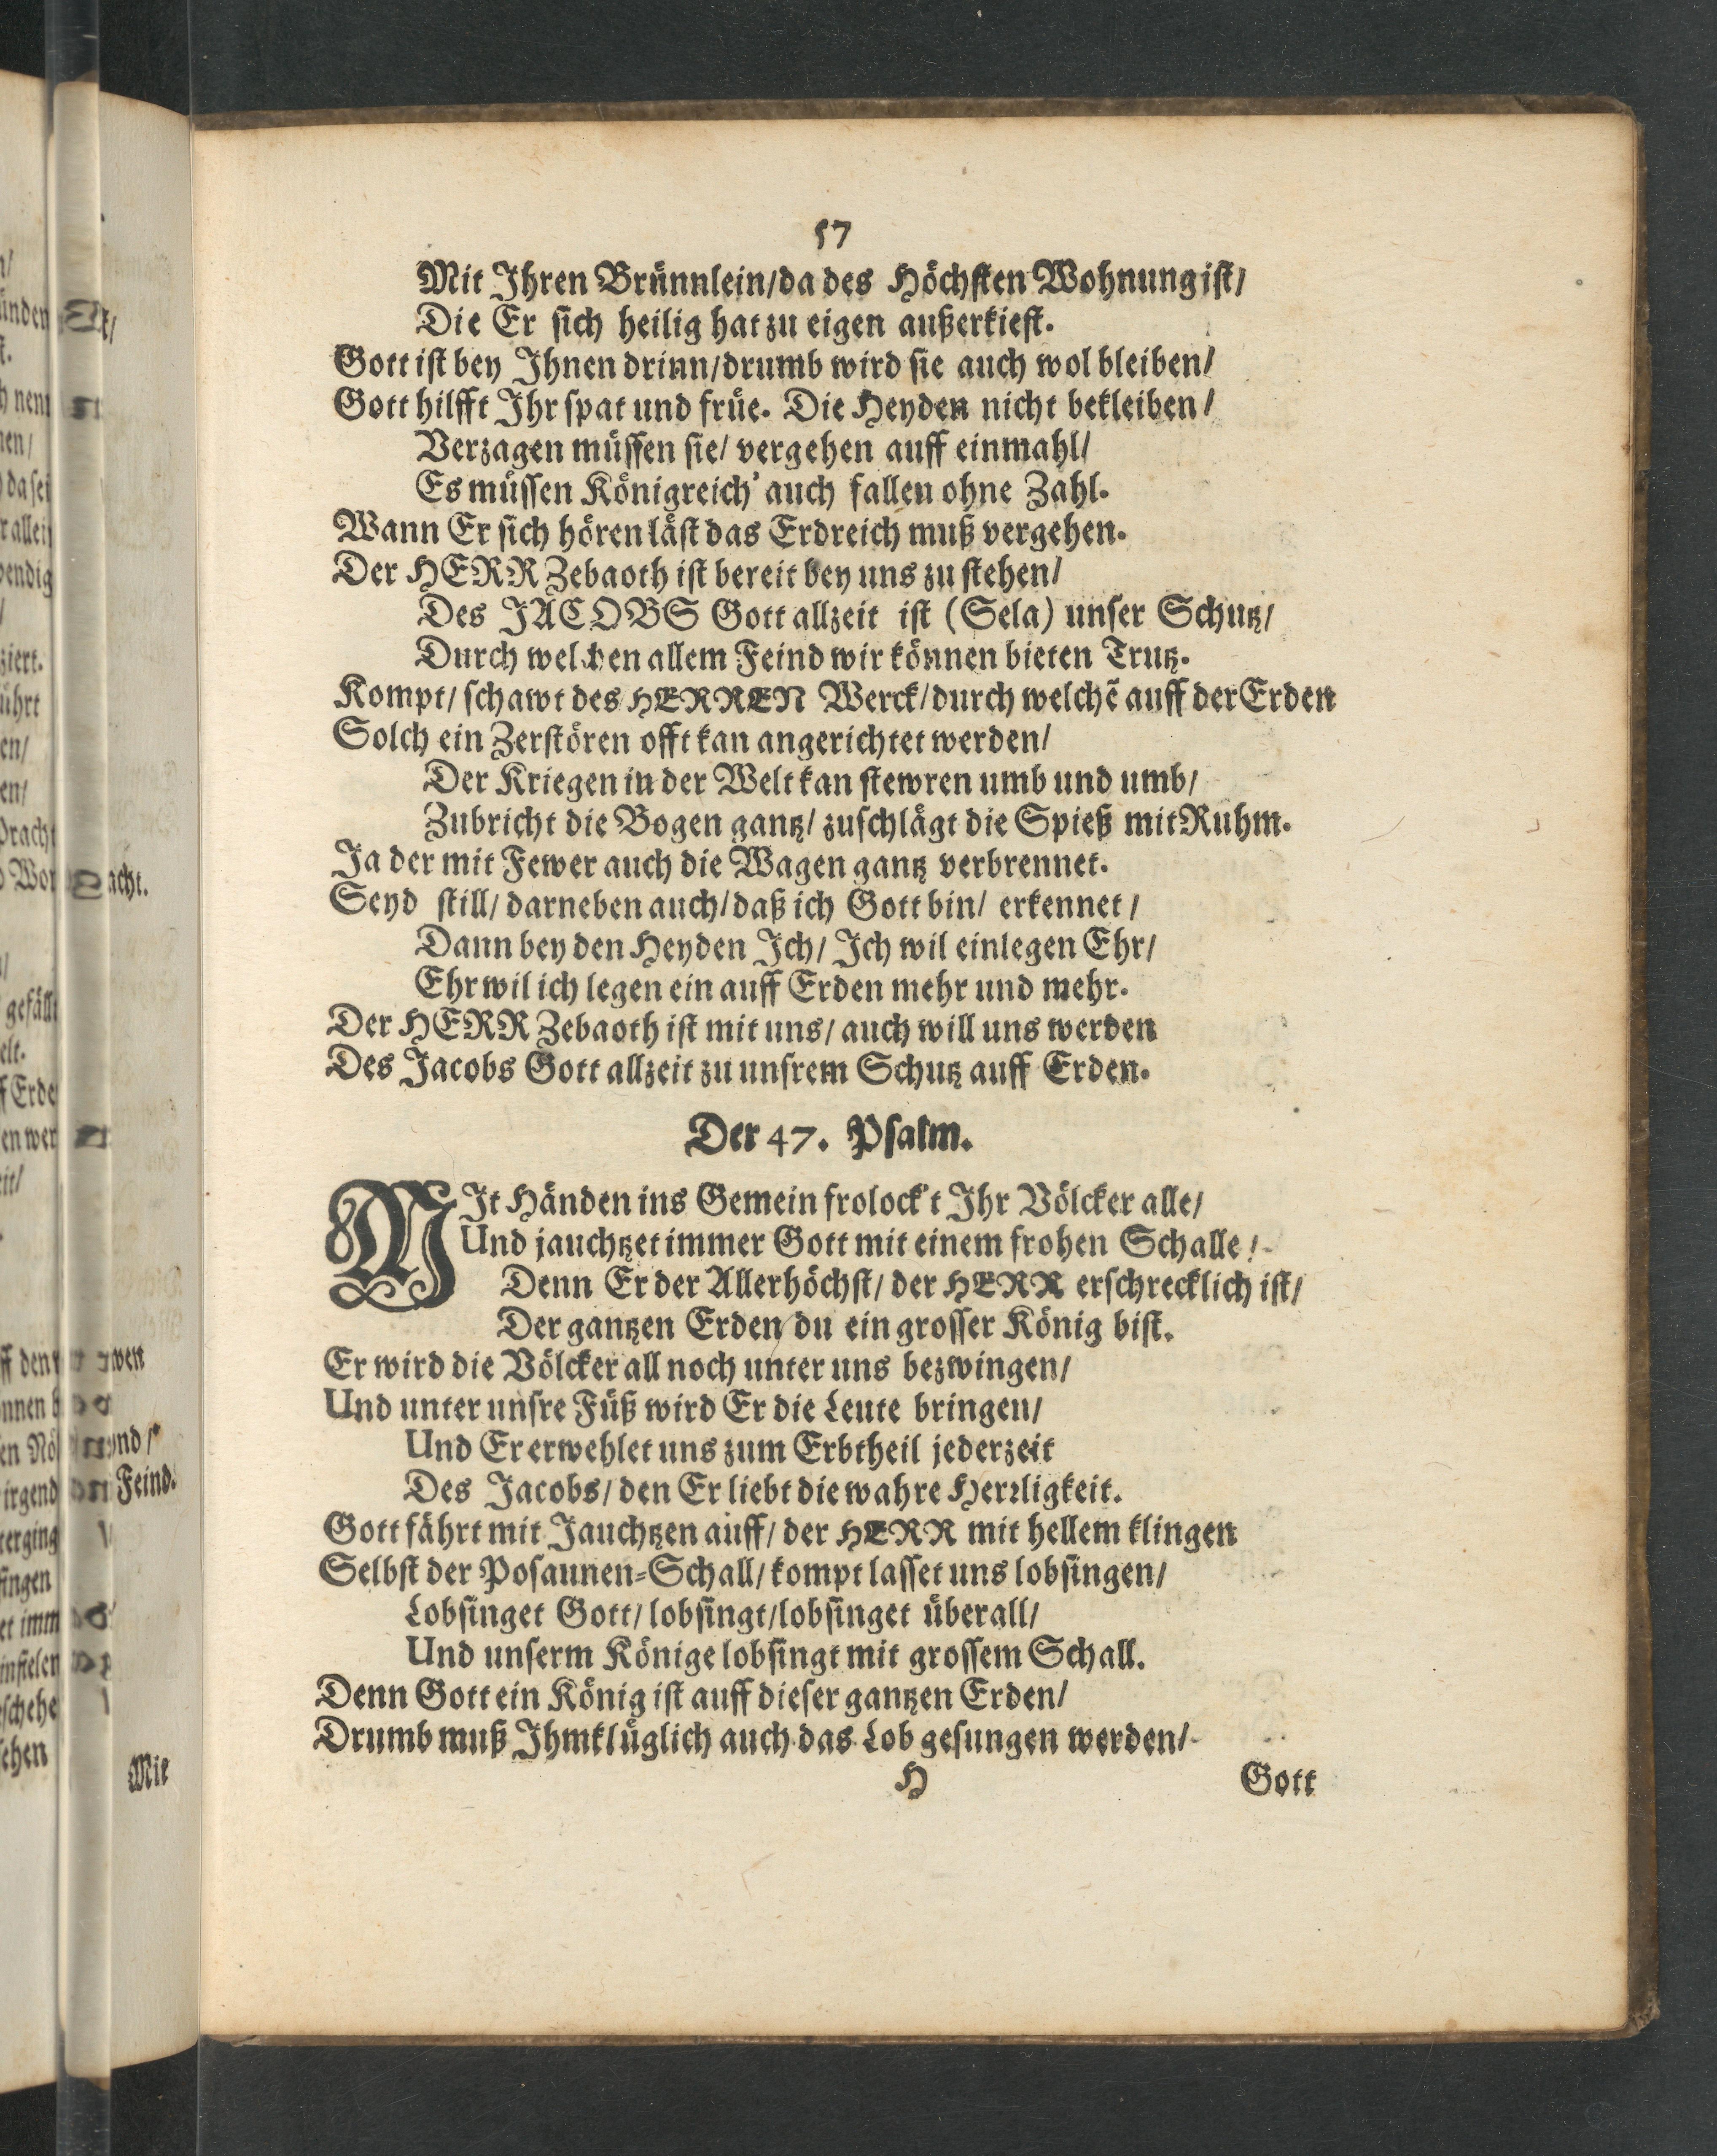 57
Mit Ihren Brünnlein/da des Höchsten Wohnung ist/
Die Er sich heilig hat zu eigen außerkiest.
Gott ist bey Ihnen drinn/drumb wird sie auch wol bleiben/
Gott hilfft Ihr spat und früe. Die Heyden nicht bekleiben/
Verzagen müssen sie/ vergehen auff einmahl/
Es müssen Königreich' auch fallen ohne Zahl.
Wann Er sich hören läst das Erdreich muß vergehen.
Der HERR Zebaoth ist bereit bey uns zu stehen/
Des JACOBS Gott allzeit ist (Sela) unser Schutz/
Durch welchen allem Feind wir können bieten Trutz.
Kompt/ schawt des HERREN Werck/durch welchẽ auff der Erden
Solch ein Zerstören offt kan angerichtet werden/
Der Kriegen in der Welt kan stewren umb und umb/
Zubricht die Bogen gantz/ zuschlägt die Spieß mit Ruhm.
Ja der mit Fewer auch die Wagen gantz verbrennet.
Seyd still/ darneben auch/daß ich Gott bin/ erkennet/
Dann bey den Heyden Ich/ Ich wil einlegen Ehr/
Ehr wil ich legen ein auff Erden mehr und mehr.
Der HERR Zebaoth ist mit uns/ auch will uns werden
Des Jacobs Gott allzeit zu unsrem Schutz auff Erden.
Der 47. Psalm.
MIt Händen ins Gemein frolock't Ihr Völcker alle/
Und jauchtzet immer Gott mit einem frohen Schalle/
Denn Er der Allerhöchst/ der HERR erschrecklich ist/
Der gantzen Erden/du ein grosser König bist.
Er wird die Völcker all noch unter uns bezwingen/
Und unter unsre Füß wird Er die Leute bringen/
Und Er erwehlet uns zum Erbtheil jederzeit
Des Jacobs/ den Er liebt die wahre Herrligkeit.
Gott fährt mit Jauchtzen auff/ der HERR mit hellem klingen
Selbst der Posaunen-Schall/ kompt lasset uns lobsingen/
Lobsinget Gott/ lobsingt/lobsinget überall/
Und unserm Könige lobsingt mit grossem Schall.
Denn Gott ein König ist auff dieser gantzen Erden/
Drumb muß Ihm klüglich auch das Lob gesungen werden/
H
Gott
acht.
Feind.
Mit